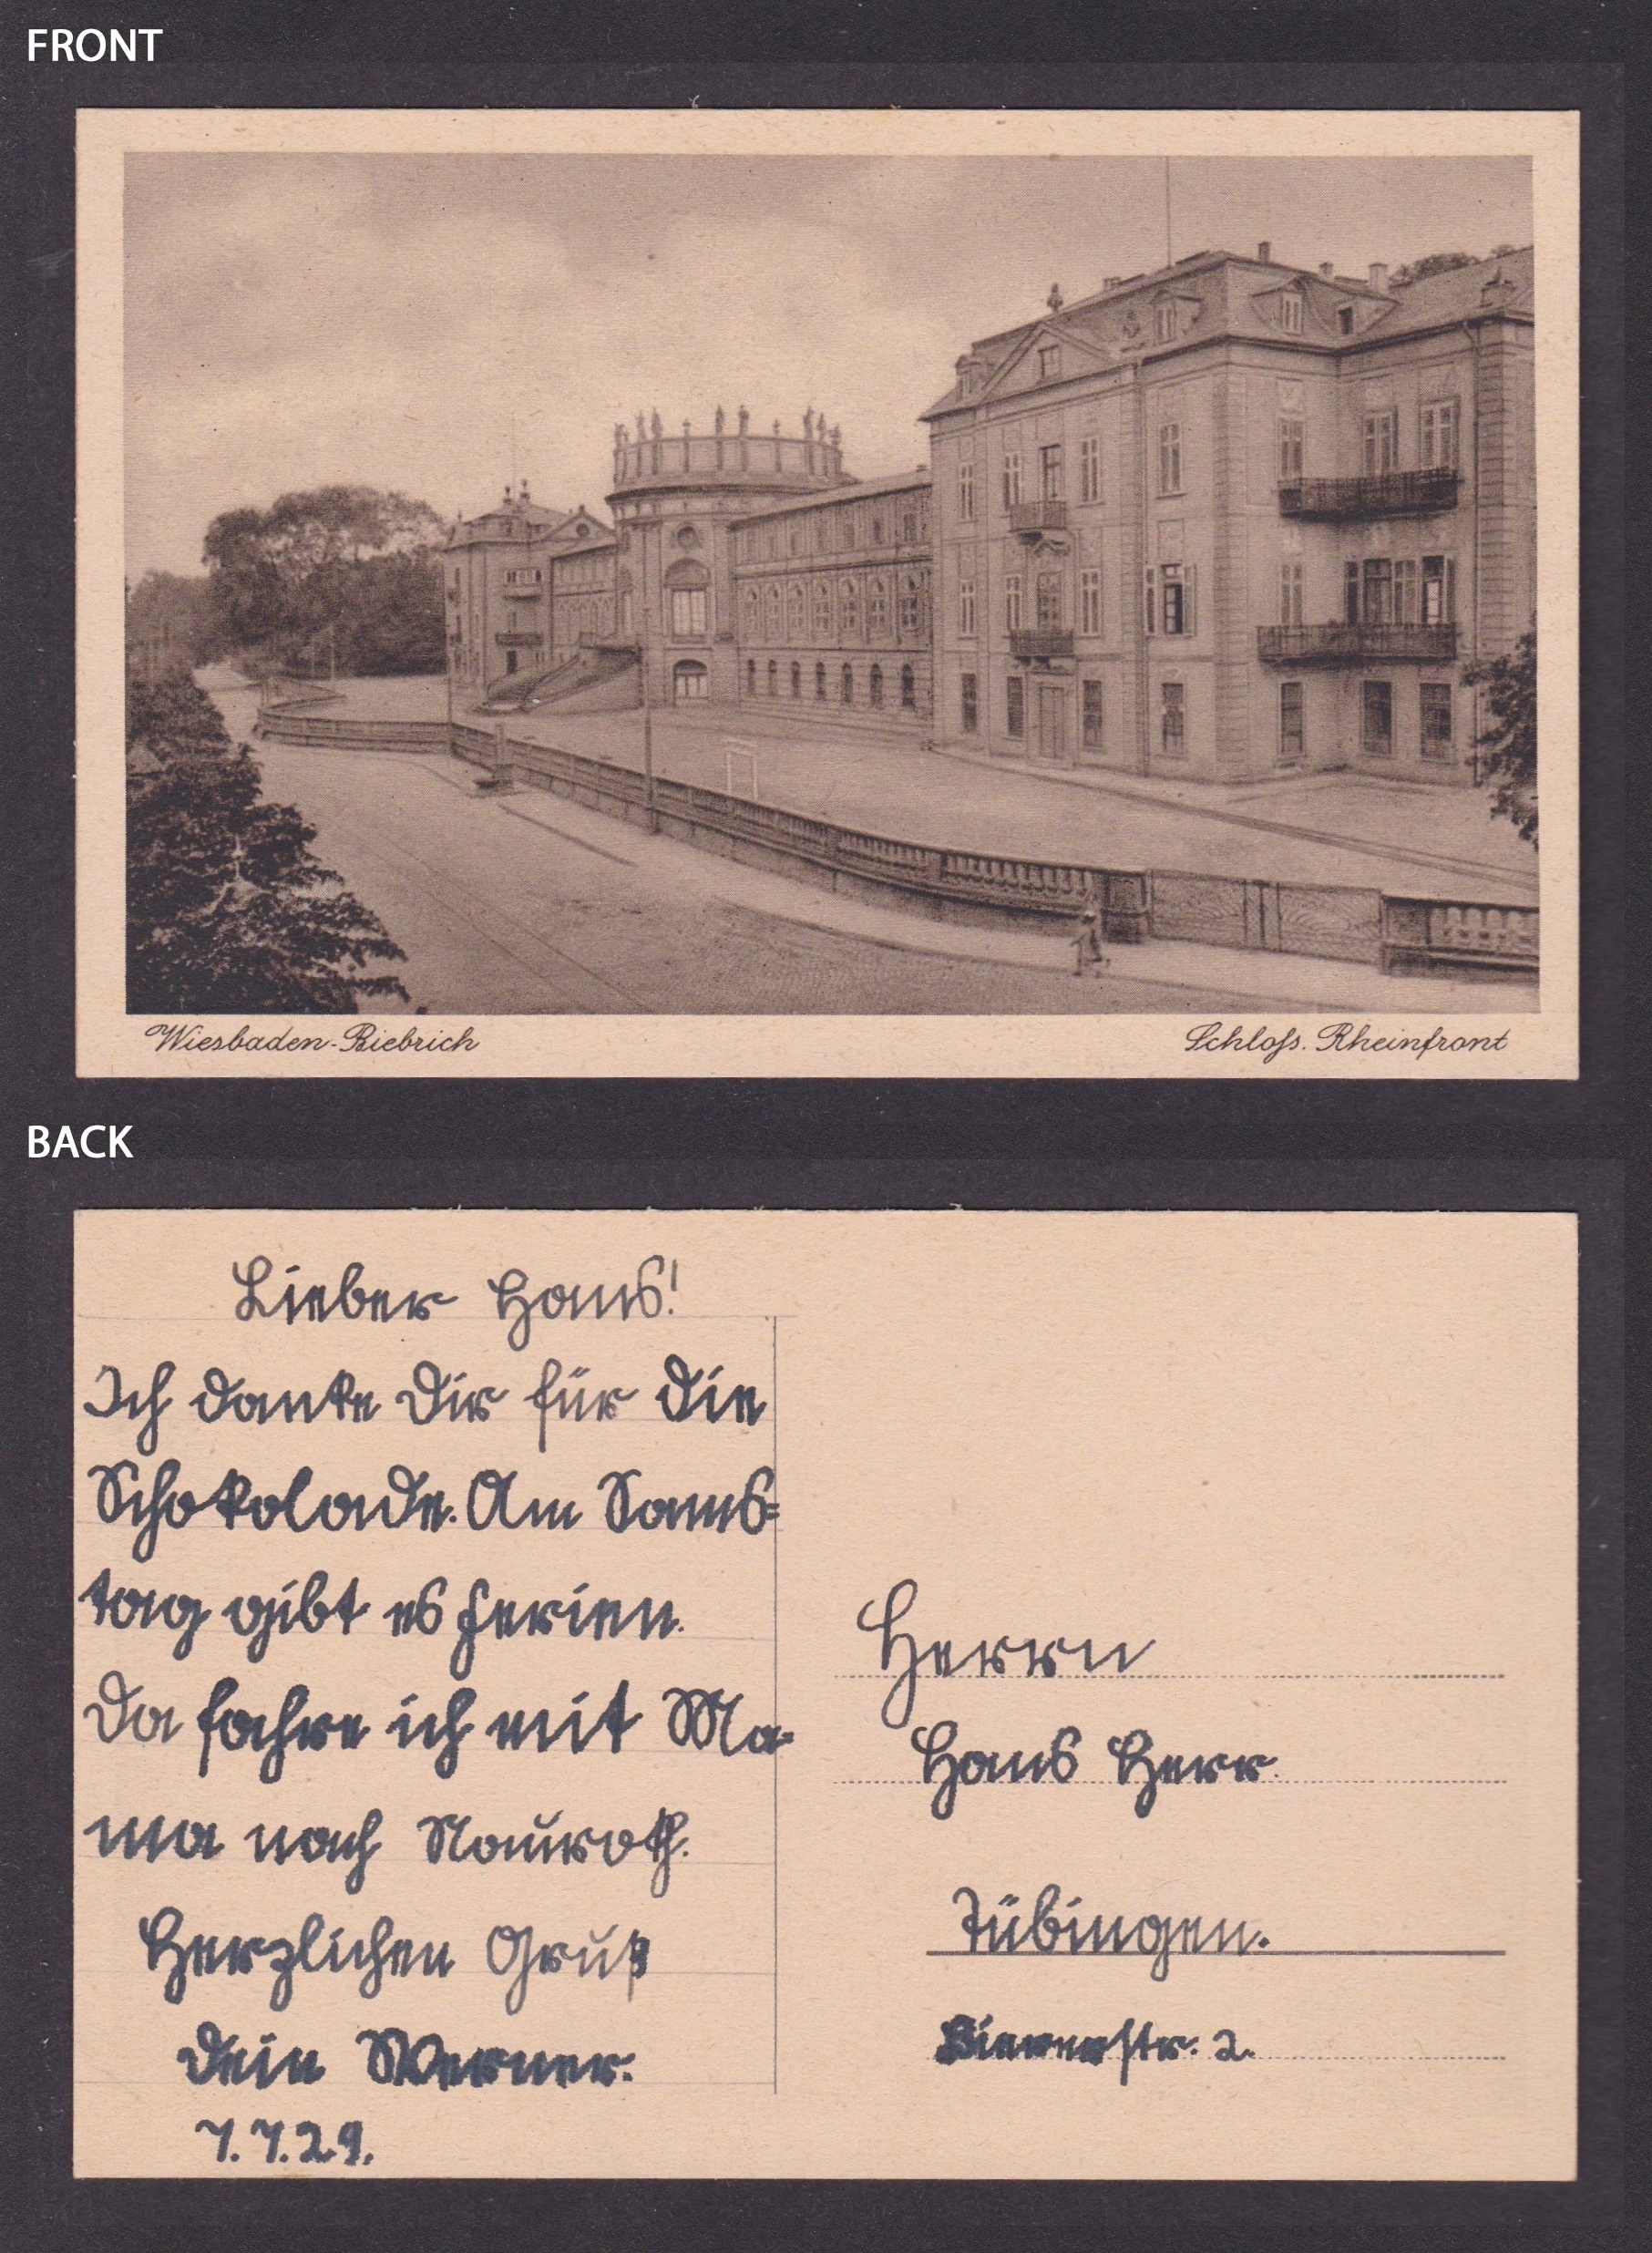 FRONT
Wiesbaden-Biebrich
Schloß. Rheinfront
BACK
Lieber Hans!
Ich danke Dir für die
Schokolade. Am Sams=
tag gibt es Ferien.
Da fahre ich mit Ma-
ma nach Nauroth.
Herzlichen Gruß
Dein Werner.
7.7.29.
Herrn
Hans Herr
Tübingen.
str. 2.